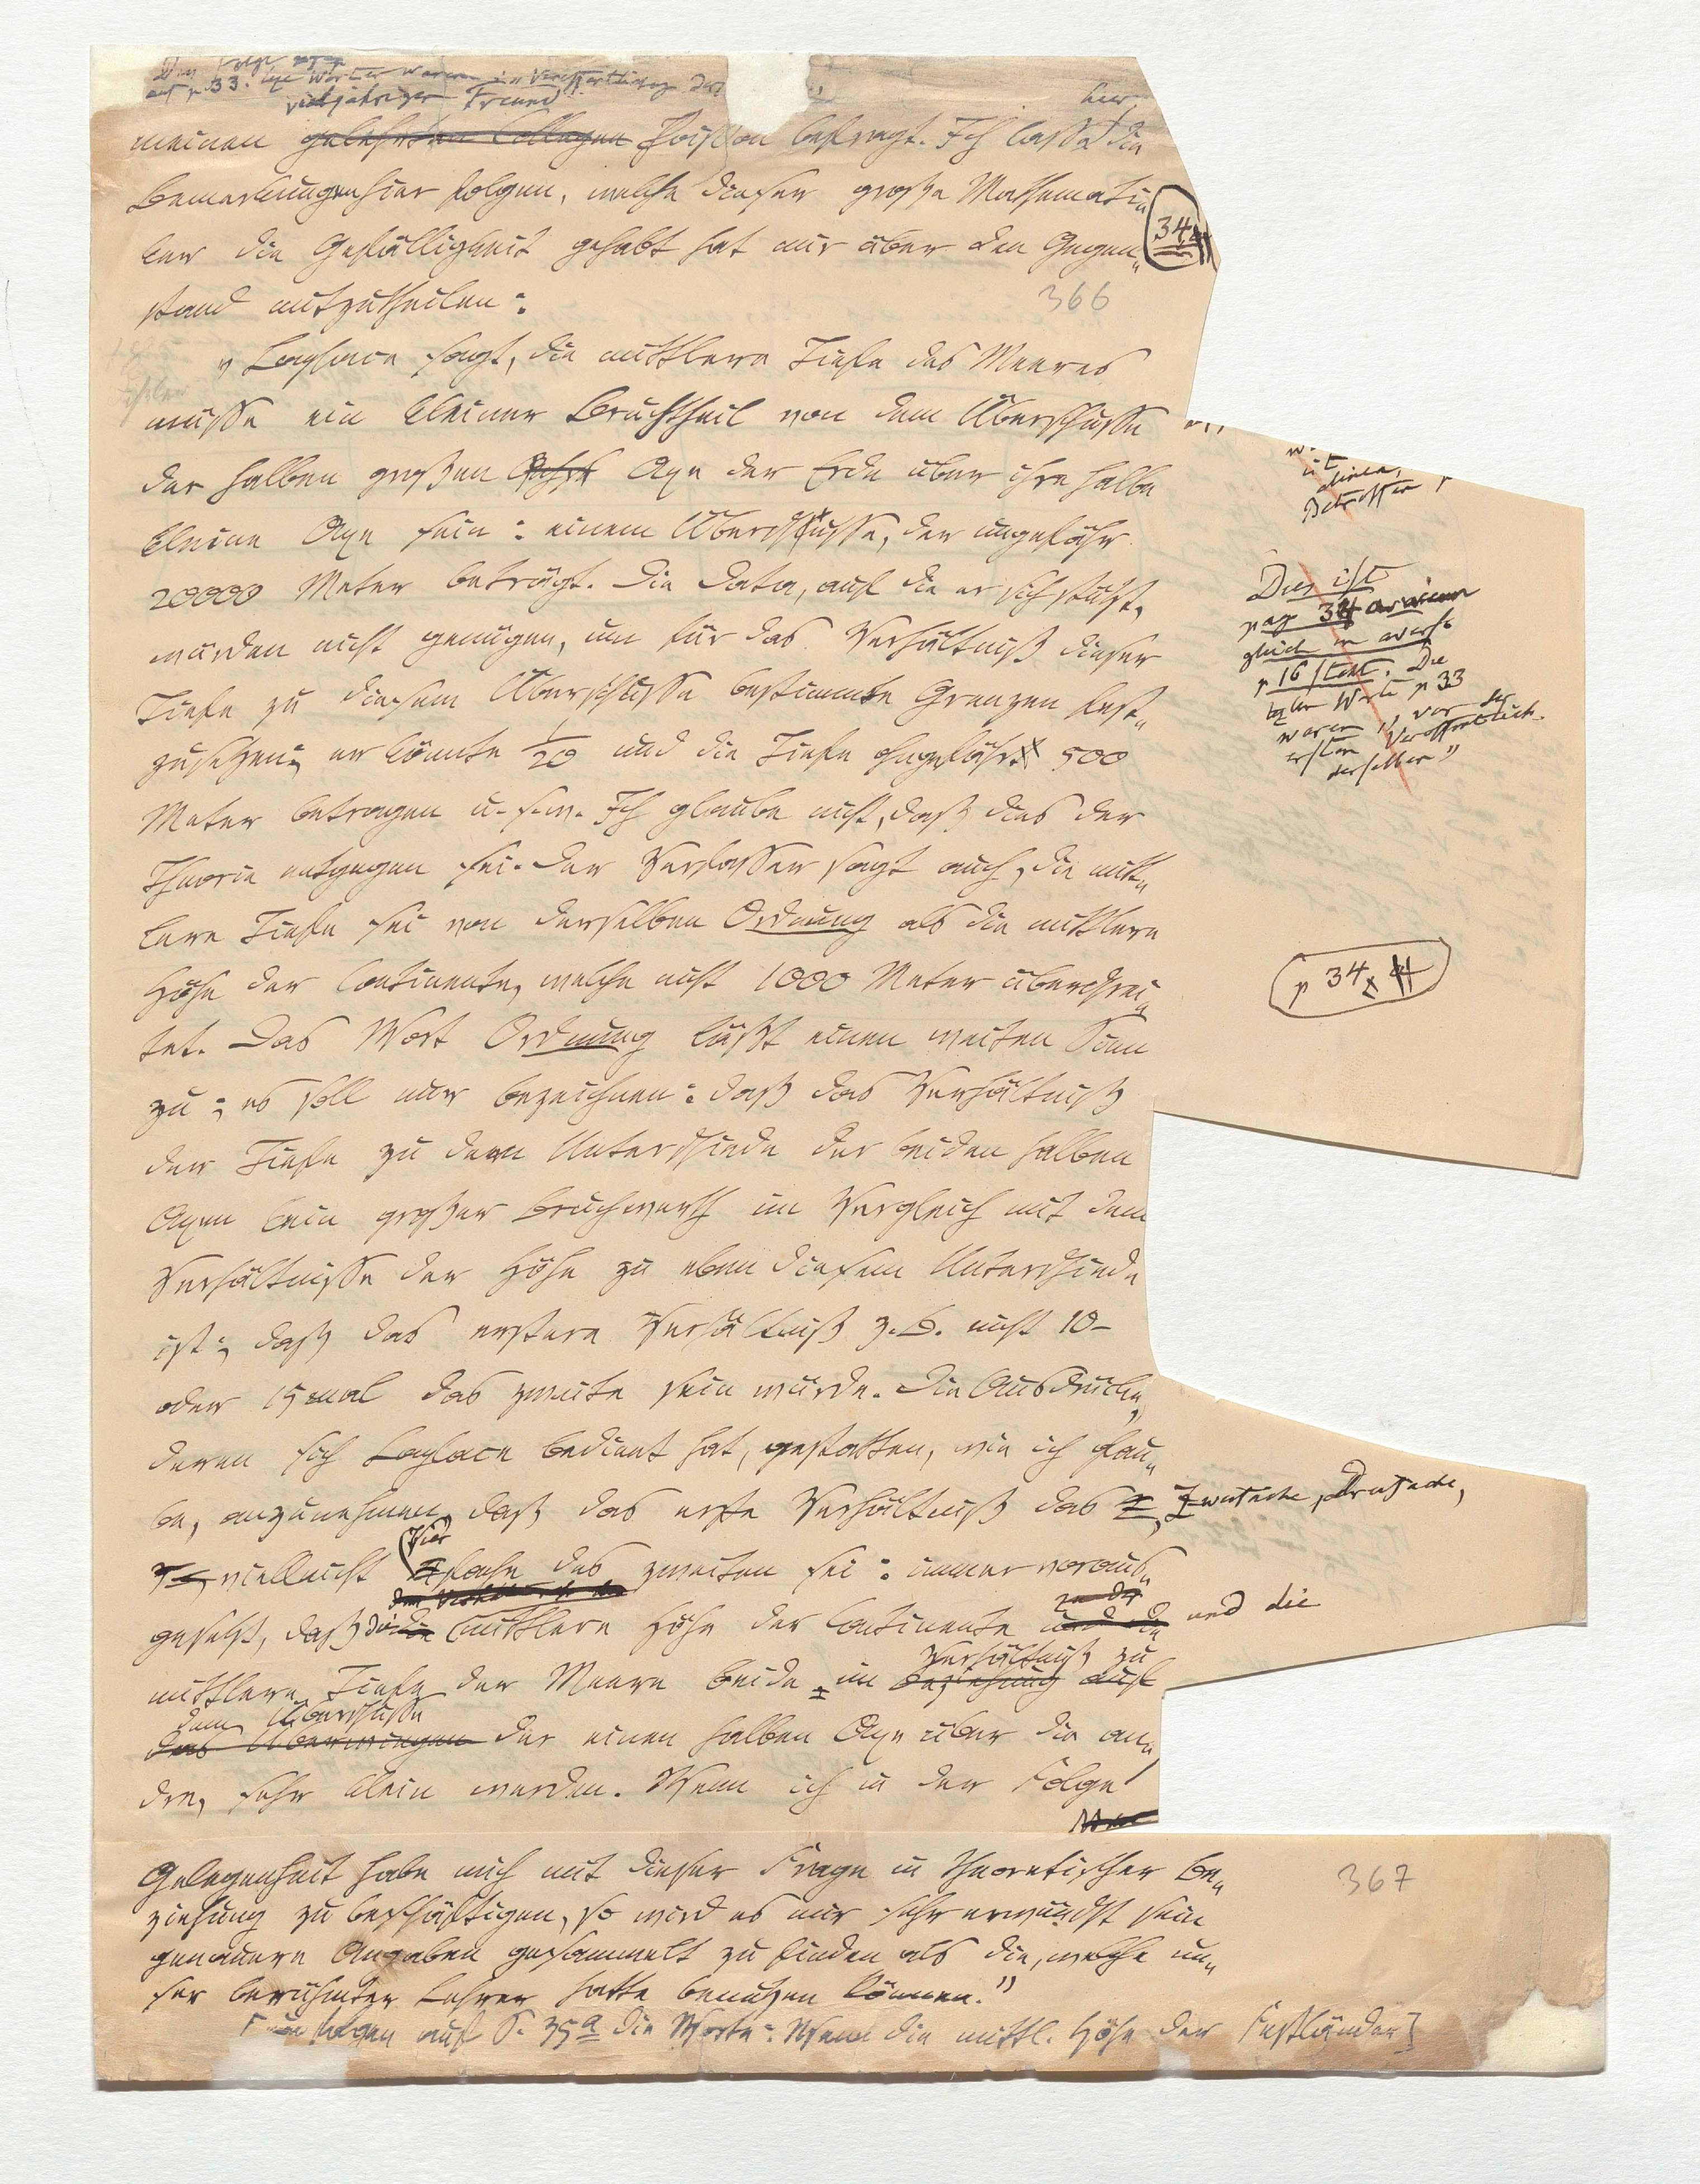 auf p 33. letzte Wörter waren „Veröffentlichung der
vieljähriger Freund
meinen gelehrten Collegen Poisson befragt. Ich lasse die
hier
Bemerkungen hier folgen, welche dieser große Mathemati-
ker die Gefälligkeit gehabt hat mir über den Gegen-
34
stand mitzutheilen:
366
„Laplace sagt, die mittlere Tiefe des Meeres
müsse ein kleiner Bruchtheil von dem Überschusse
der halben großen Achse Axe der Erde über ihre halbe
kleine Axe sein: einem Überschusse, der ungefähr
20000 Meter beträgt. Die Data, auf die er sich stützt,
würden nicht genügen, um für das Verhältniß dieser
Tiefe zu diesem Überschusse bestimmte Grenzen fest-
zusetzen; er könnte 1/20 und die Tiefe ohngefähr 500
Meter betragen u. s. w. Ich glaube nicht, daß dies der
Theorie entgegen sei. Der Verfasser sagt auch, die mitt-
lere Tiefe sei von derselben Ordnung als die mittlere
Höhe der Continente, welche nicht 1000 Meter überschrei-
tet. Das Wort Ordnung läßt einen weiten Sinn
zu; es soll nur bezeichnen: daß das Verhältniß
der Tiefe zu dem Unterschiede der beiden halben
Axen kein großer Bruchwerth im Vergleich mit dem
Verhältnisse der Höhe zu eben diesem Unterschiede
ist; daß das erstere Verhältniß z. B. nicht 10-
oder 15mal das zweite sein würde. Die Ausdrücke,
deren sich Laplace bedient hat, gestatten, wie ich glau-
be, anzunehmen, daß das erste Verhältniß das 2, Zweifache, Dreifache,
3-, vielleicht Vierfache des zweiten sei: immer voraus-
gesetzt, daß die mittlere Höhe der Continente und die
Verhältniß zu
mittlere Tiefe der Meere beide, im Beziehung auf
dem Überschusse
das Überwiegen der einen halben Axe über die an-
dre, sehr klein werden. Wenn ich in der Folge
Gelegenheit habe mich mit dieser Frage in theoretischer Be-
367
ziehung zu beschäftigen, so wird es mir sehr erwünscht sein
genauere Angaben gesammelt zu finden als die, welche un-
ser berühmter Lehrer hatte benutzen können.”
folgen auf S. 35a die Worte: Wenn die mittl. Höhe der Festländer]
Betreffen
Dies ist
pag 34
gleich
p 16 steht. Die
letzten Worte p 33
waren „vor der
ersten Veröffentlich.
derselben”
p 34